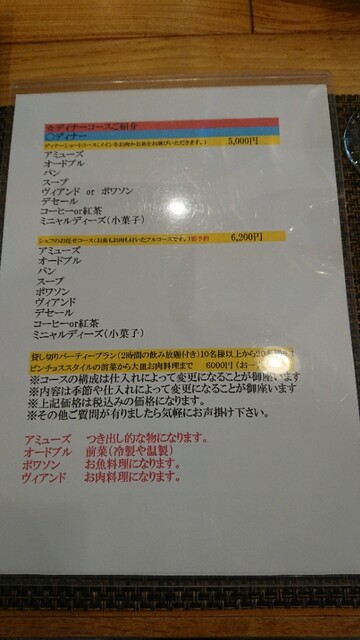 ☆ディナーコースご紹介
○ディナー
ディナーショートコース(メインをお肉かお魚をお選びいただきます。) 5,000円
アミューズ
オードブル
パン
スープ
ヴィアンド or ポワソン
デセール
コーヒーor紅茶
ミニャルディーズ(小菓子)
シェフのお任せコース(お魚もお肉も付いたフルコースです。)要予約 6,200円
アミューズ
オードブル
パン
スープ
ポワソン
ヴィアンド
デセール
コーヒーor紅茶
ミニャルディーズ(小菓子)
貸し切りパーティープラン(2時間の飲み放題付き)10名様以上から20
ピンチョススタイルの前菜から大皿お肉料理まで 6000円(お一
※コースの構成は仕入れによって変更になることが御座います
※内容は季節や仕入れによって変更になることが御座います
※上記価格は税込みの価格になります。
※その他ご質問が有りましたら気軽にお声掛け下さい。
アミューズ つき出し的な物になります。
オードブル 前菜(冷製や温製)
ポワソン お魚料理になります。
ヴィアンド お肉料理になります。